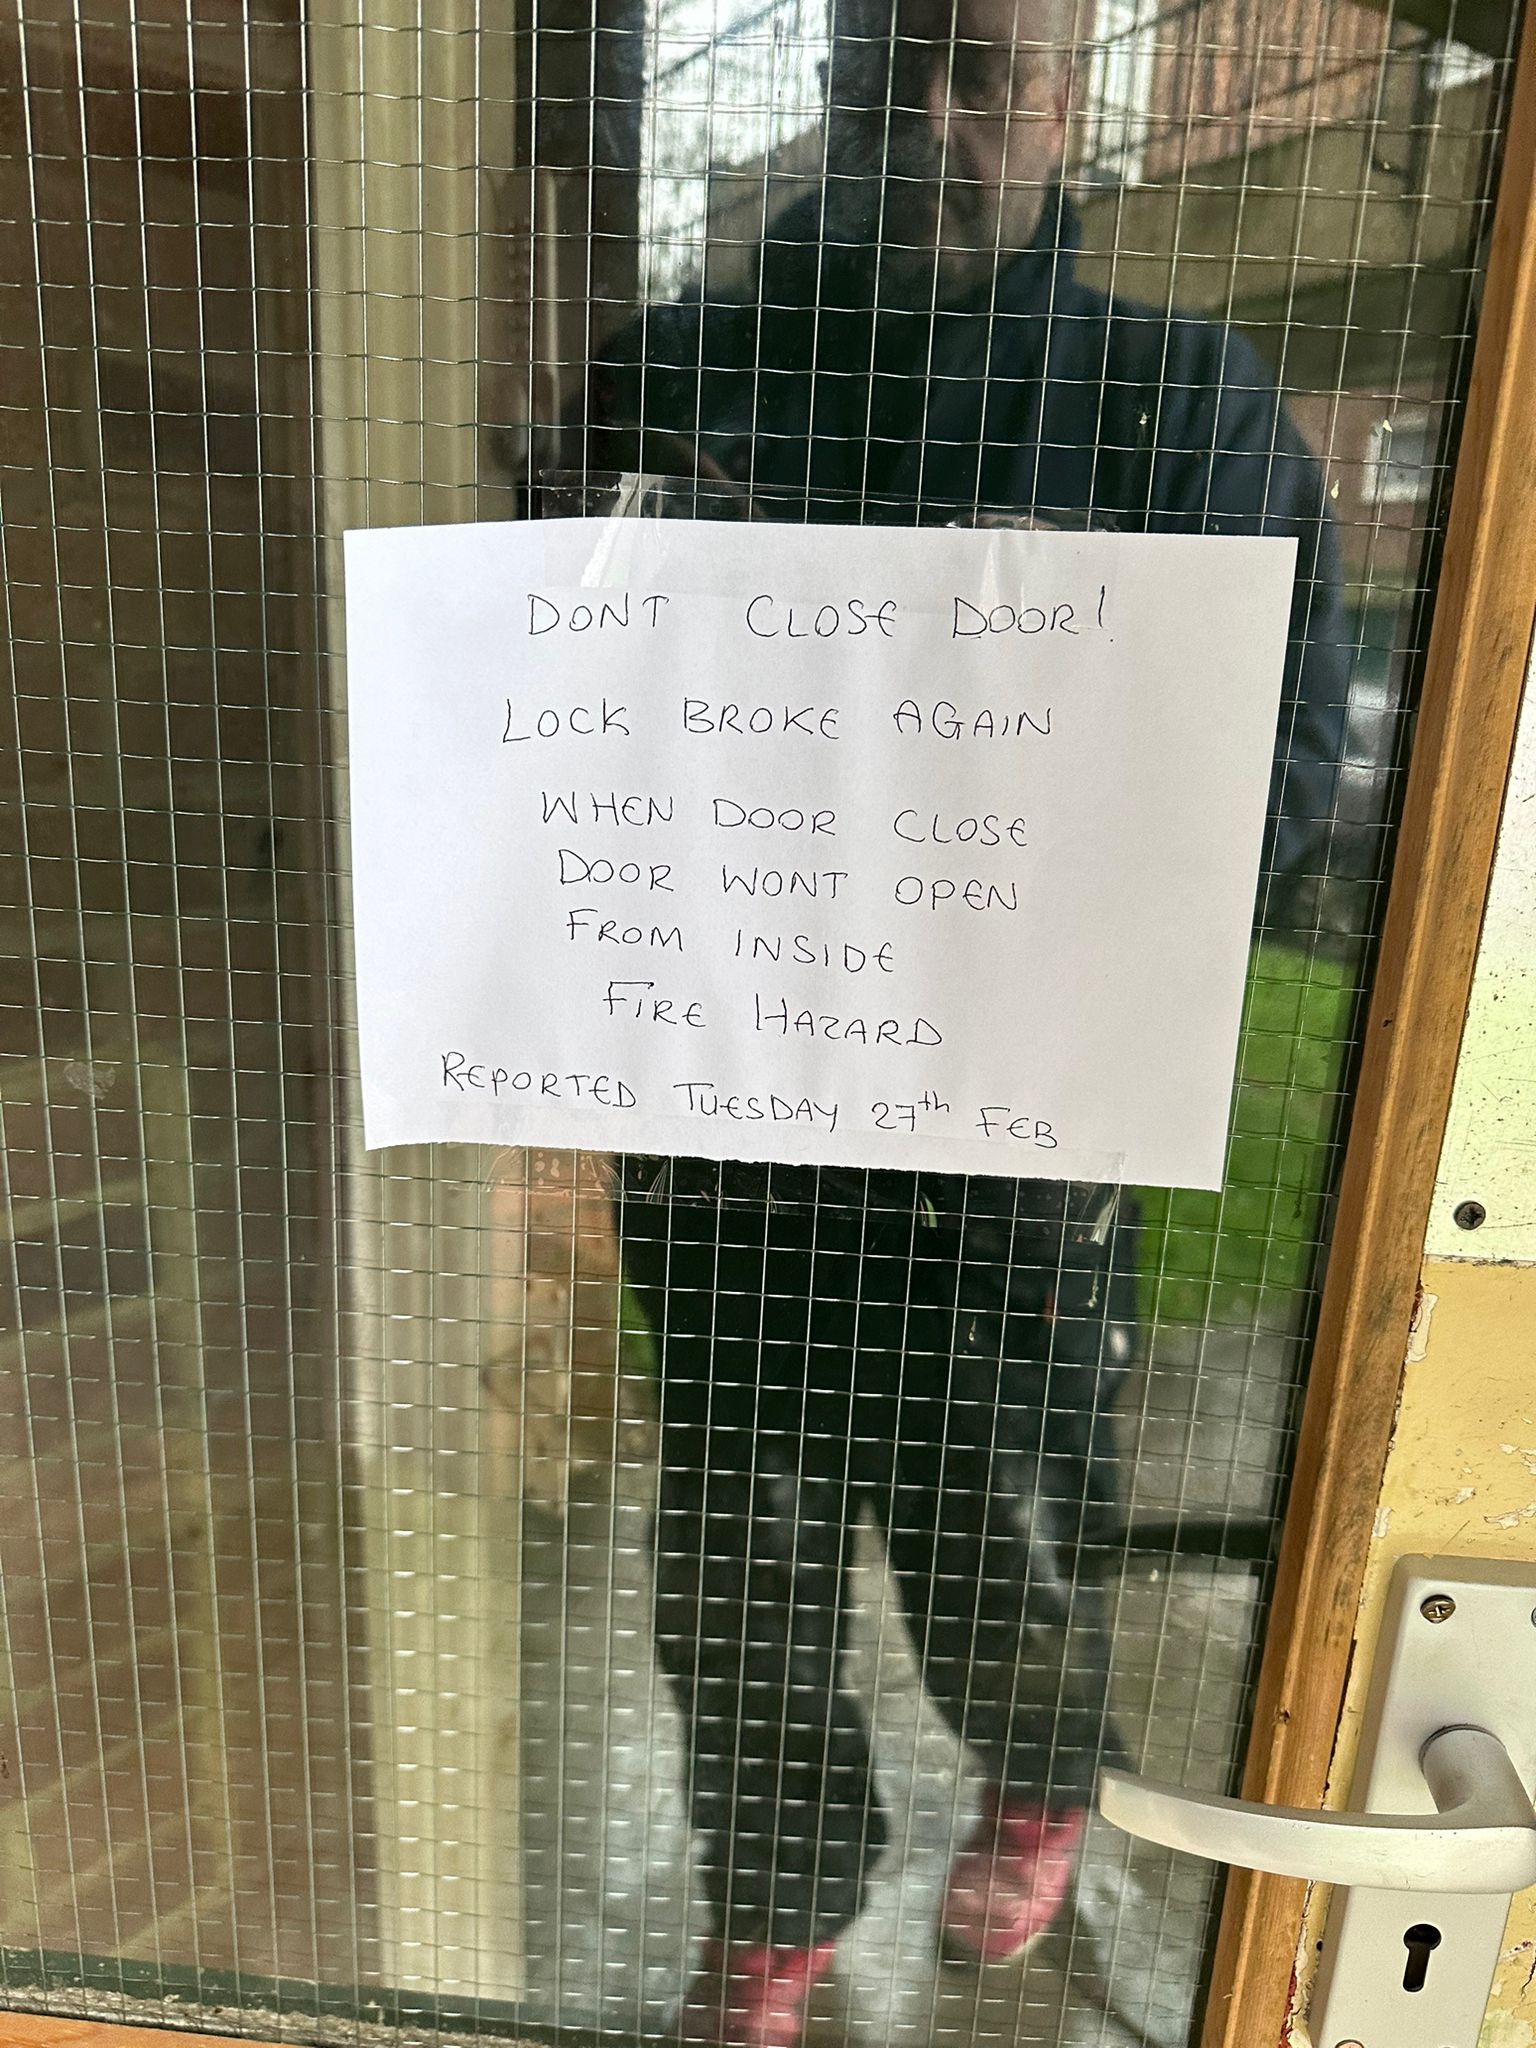 DONT CLOSE DOOR!
LOCK BROKE AGAIN
WHEN DOOR CLOSE
DOOR WONT OPEN
FROM INSIDE
FIRE HAZARD
REPORTED TUESDAY 27th FEB